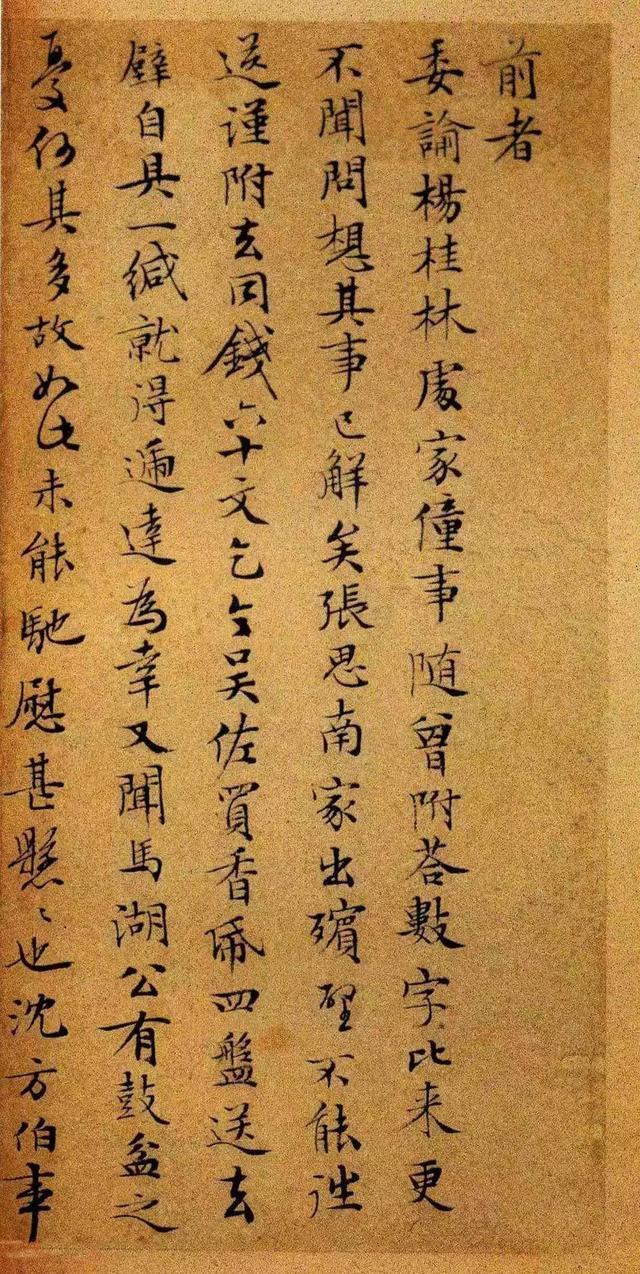 前者
委論楊桂林處家僮事随曾附荅數字比来更
不聞問想其事已解矣張思南家出殯壁不能往
送謹附去同錢六十文乞令吴佐買香帋四盤送去
壁自具一緘就得逓達為幸又聞馬湖公有鼓盆之
憂何其多故如此未能馳慰甚懸〻也沈方伯事